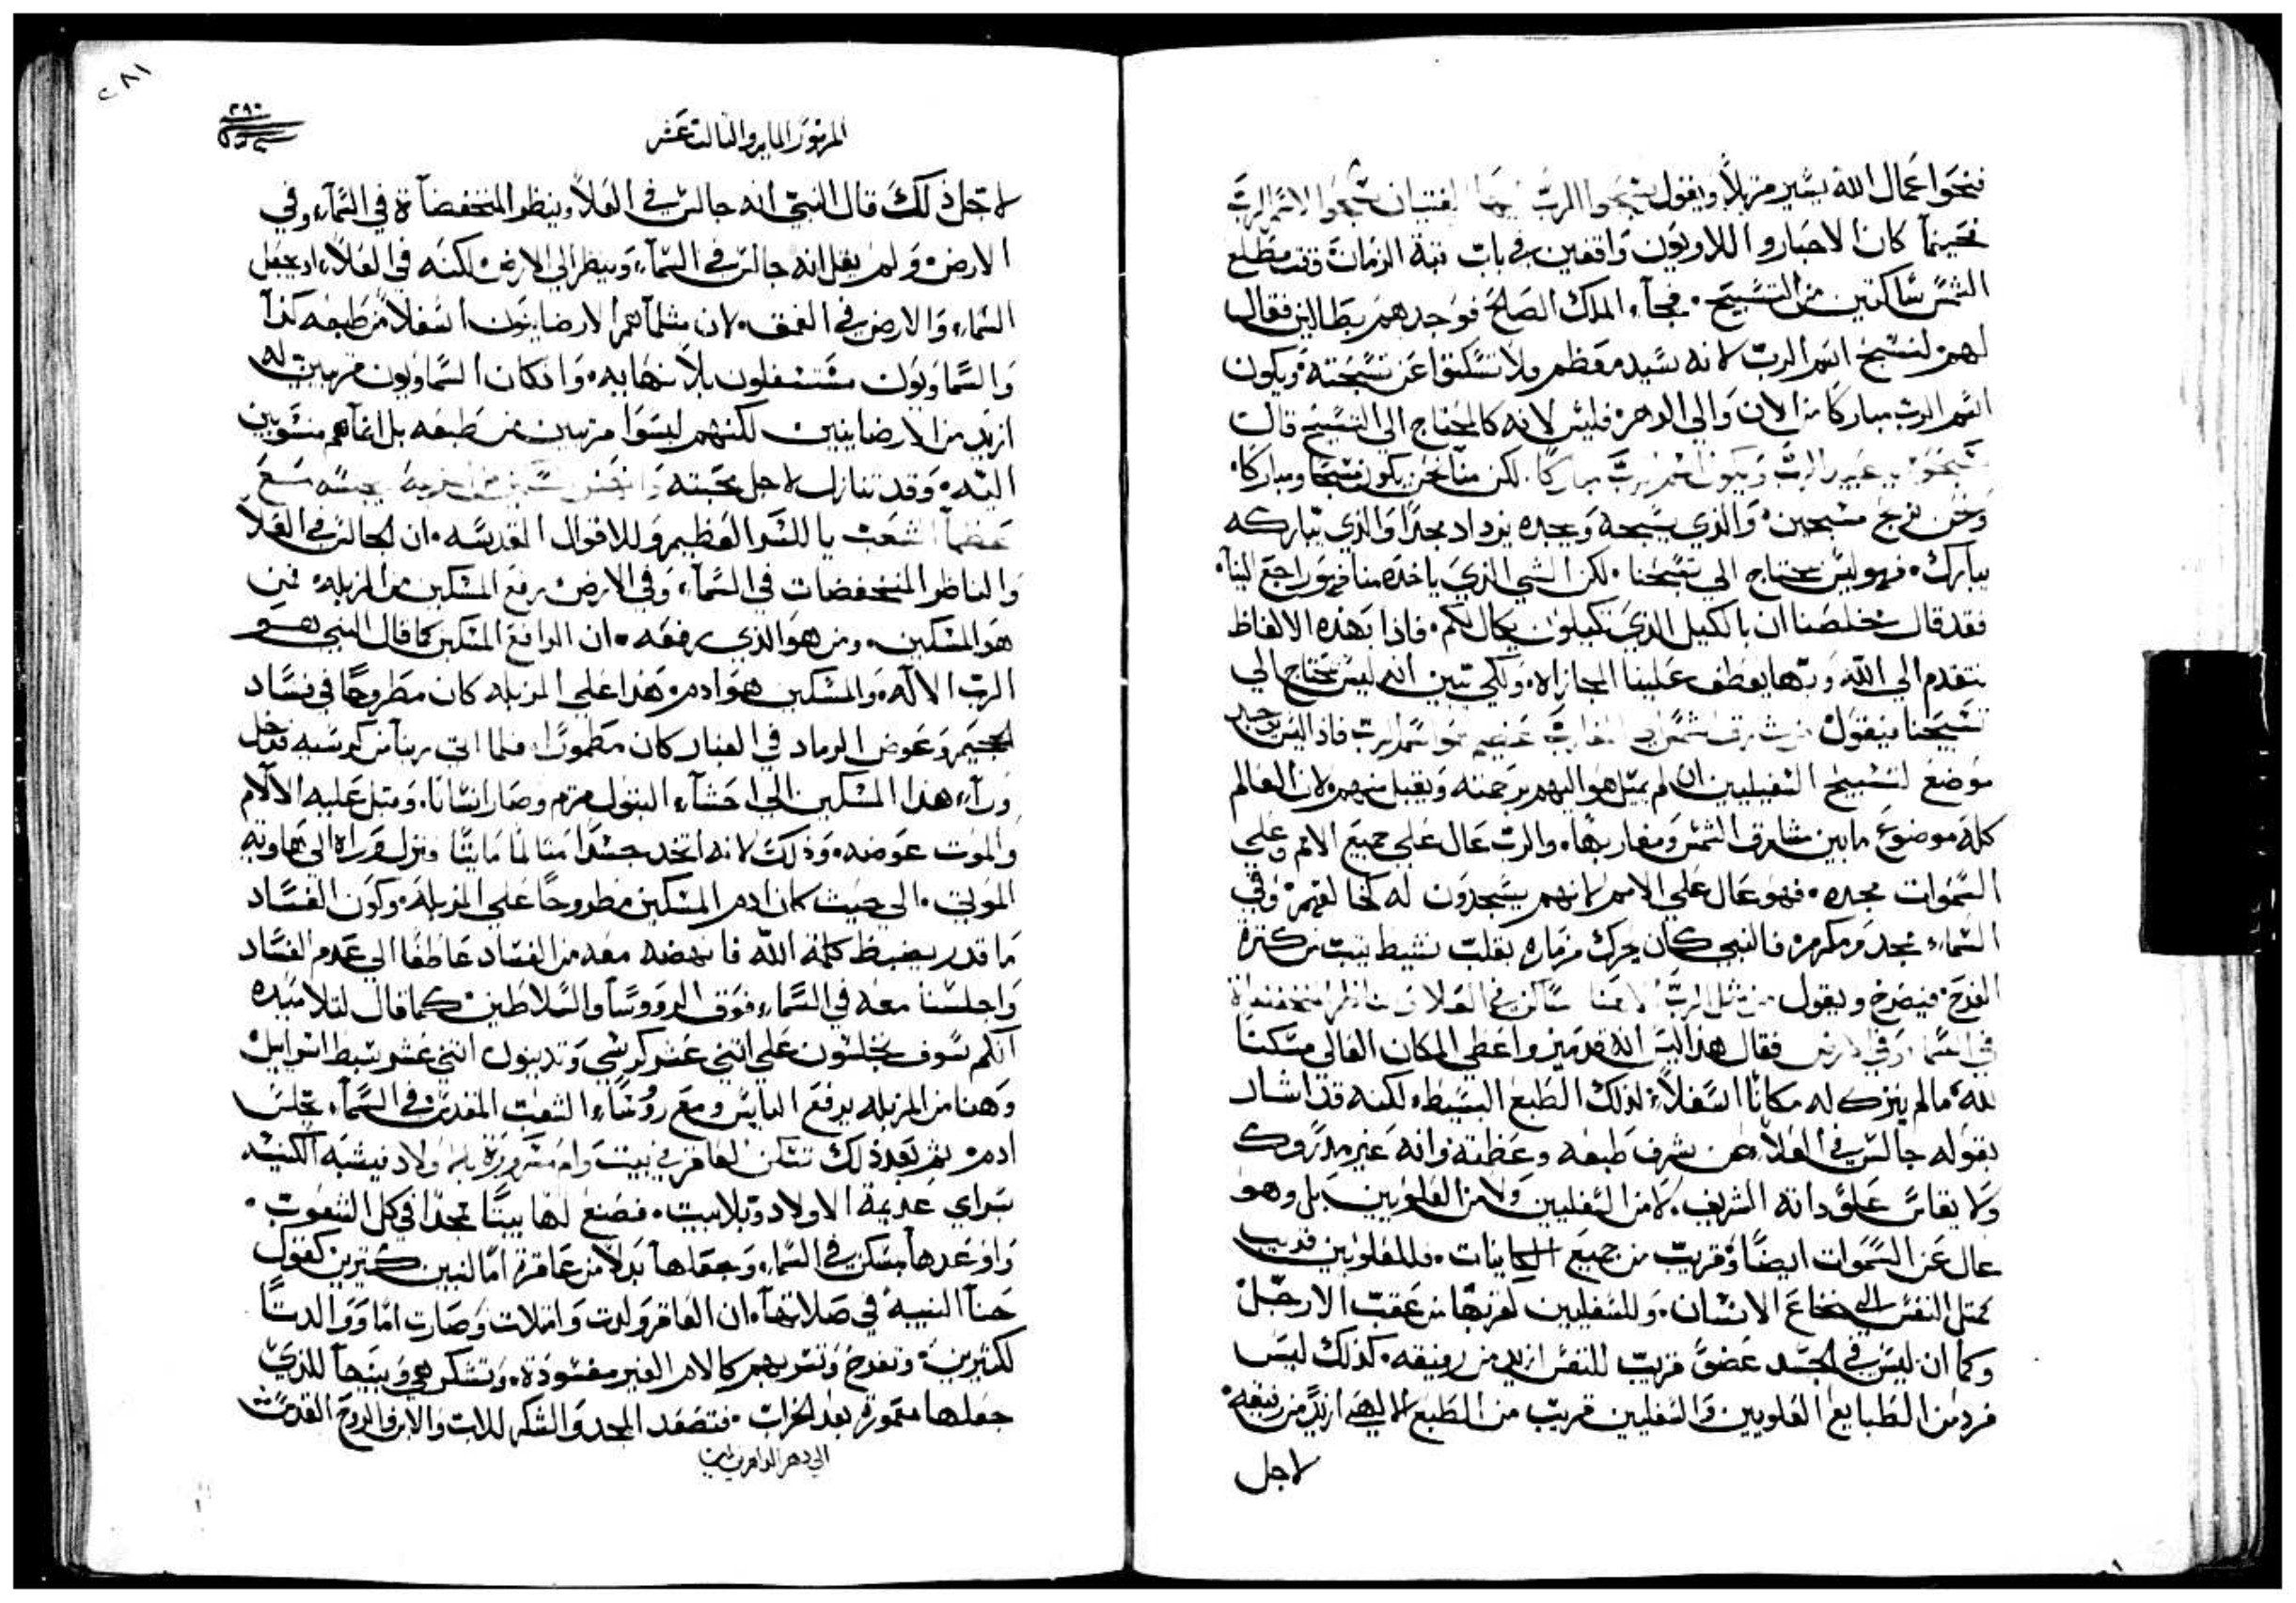 فنحوا عمال الله يشير مزملاً ويقول سبحوا الرب ايها الفتيان سبحوا لاسم الرب
فحينما كان الاحبار واللاويون واقفين في باب قبة الزمان وقت مطلع
الشمس ساكتين من التسبيح. فجآء الملك الصالح فوجدهم بطالين فقال
لهم لنسبح اسم الرب لانه سيد معظم ولا تسكتوا عن تسبحته. ويكون
اسم الرب مباركًا من الان والي الدهر. فليس لانه كالمحتاج الي التسبيح قال
سبحوا يا عبيد الرب ويكون اسم الرب مباركًا. لكن منا نحن يكون مسبحًا ومباركًا.
ونحن نربح مسبحين. والذي يسبحه ويمجده يزداد مجدًا والذي يباركه
يبارك. فهو ليس محتاج الي تسبيحنا. لكن الشي الذي ياخذه منا فهو راجع الينا.
فقد قال مخلصنا ان بالكيل الذي تكيلون يكال لكم. فاذا بهذه الالفاظ
نتقدم الي الله وبها يعطف علينا المجازاه. ولكي تبين انه ليس محتاج الي
تسبيحنا فيقول من مشارق الشمس الي مغاربها سبحوا اسم الرب فاذا ليس يوجد
موضع لتسبيح السفليين ان لم يميل هو اليهم برحمته ويقبل منهم. لان العالم
كله موضوع مابين مشارق الشمس ومغاربها. والرب عال علي جميع الامم وعلي
السموات مجده. فهو عال علي الامم لانهم يسجدون له كخالقهم. وفي
السماء ممجد ومكرم. فالنبي كان يحرك مزماره بقلب نشيط بيت من كثرة
الفرح. فيصرخ ويقول من مثل الرب الاهنا ساكن في العلا وناظر المنخفضاة
في السما وفي الارض فقال هذا ليس انه قد ميز واعطي المكان العالي مسكنًا
لله. مالم يترك له مكانًا اسفلاً لذلك الطبع البسيط. لكنه قد اشار
بقوله جالس في العلا. عن شرف طبعه وعظمته وانه غير مدروك
ولا يقاس علو ذاته الشريف. لا من السفليين ولا من العلويين بل وهو
عال عن السموات ايضًا وقريب من جميع الكاينات. فللعلويين قريب
كمثل النفس الي نخاع الانسان. وللسفليين لقربها من عقب الارجل
وكما ان ليس في الجسد عضو قريب للنفس ازيد من رفيقه. كذلك ليس
فرد من الطبايع العلويين والسفليين قريب من الطبع الالهي ازيد من رفيقه.
لاجل
٢٨١
٢٨٠
المزمور المايه والثالث عشر
لاجل ذلك قال النبي انه جالس في العلا وينظر المنخفضاة في السمآء وفي
الارض ولم يقل انه جالس في السمآء وينظر الي الارض لكنه في العلاء. اذ يجعل
السماء والارض في العمق. لان مثلما هم الارضاينون اسفلاً من طبعه كذا
والسماويون مستسفلون بلا نهايه. واذ كان السماويون قريبين له
ازيد من الارضاينين لكنهم ليسوا قريبين من طبعه بل انما هم منسوبين
اليه. وقد تنازل لاجل محبته
يا للسر العظيم وللاقوال المقدسه. ان الجالس في العلا
والناظر المنخفضات في السمآء وفي الارض يرفع المسكين من المزبله. فمن
هو المسكين. ومن هو الذي يرفعه. ان الرافع المسكين كما قال النبي هو
الرب الاله. والمسكين هو ادم. هذا علي المزبله كان مطروحًا في فساد
الجحيم وعوض الرماد في الغبار كان مطمورًا. فلما اتي ربنا من كرسيه فدخل
ورآء هذا المسكين الي احشآء البتول مريم وصار انسانًا. وقبل عليه الآلام
والموت عوضه. وذلك لانه اتخذ جسدًا متالمًا مايتًا ونزل وراه الي هاوية
الموتي. الي حيث كان ادم المسكين مطروحًا علي المزبلة. وكون الفساد
ما قدر يضبط كلمة الله فانهضه معه من الفساد عاطفًا الي عدم الفساد
واجلسنا معه في السماء فوق الرووسا والسلاطين. كما قال لتلاميذه
انكم سوف تجلسون علي اثني عشر كرسي وتدينون اثني عشر سبط اسراييل
وهنا من المزبله يرفع البايس ومع رؤساء الشعب المقدس في السمآء يجلس
ادم. ثم بعد ذلك تسكن العاقر في بيت وام مسرورة بلا ولاد فيشبه الكنيسه
بساراي عديمة الاولاد وبلا بيت. فصنع لها بيتًا ممجدًا في كل الشعوب.
واوعدها بسكن في السماء وجعلها بدلاً من عاقرة امًا لبنين كثيرين كقول
حنا النبيه في صلاتها. ان العاقر ولدت وامتلات وصارت امًا ووالدتًا
لكثيرين. وتفرح وتسر بهم كالام الغير مفسودة. وتشكر هي وبنيها للذي
جعلها معمورة بعد الخراب. فتصعد المجد والشكر للاب والابن والروح القدس
الي دهر الداهرين امين